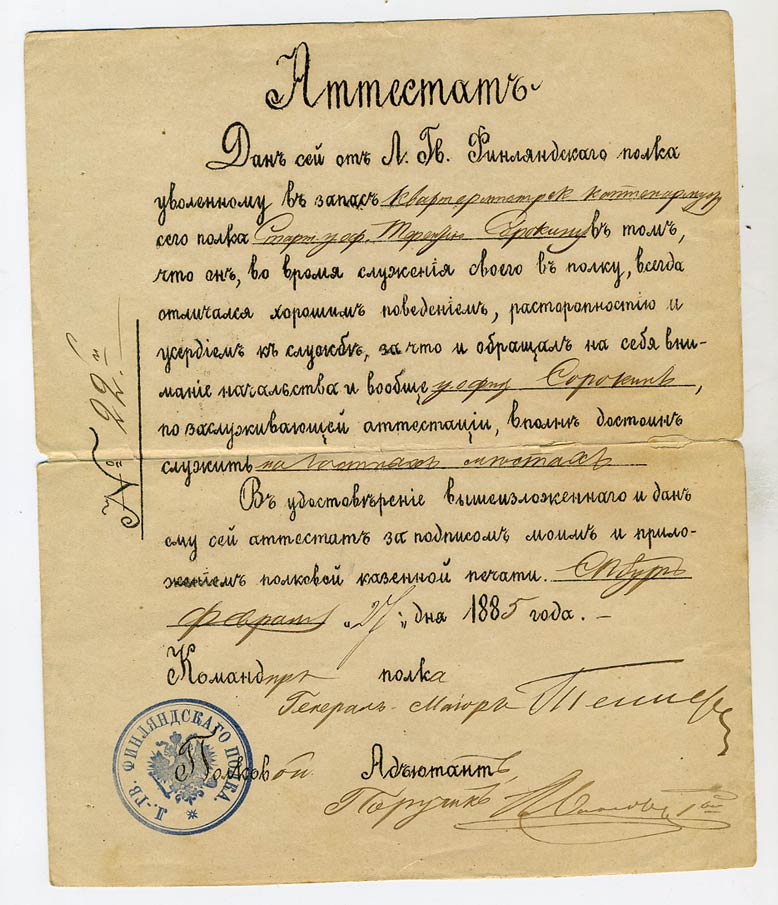 Аттестатъ
Данъ сей отъ Л. Гв. Финляндскаго полка
уволенному въ запасъ
сего полка Старш. Сорокину въ томъ,
что онъ, во время служенія своего въ полку, всегда
отличался хорошимъ поведеніемъ, расторопностію и
усердіемъ къ службѣ, за что и обращалъ на себя вни-
маніе начальства и вообще Сорокинъ,
по заслуживающей аттестаціи, вполнѣ достоинъ
служить на мѣстахъ
Въ удостовѣреніе вышеизложеннаго и данъ
ему сей аттестатъ за подписомъ моимъ и прило-
женіемъ полковой казенной печати. СПбургъ
Февраля "27" дня 1885 года. –
Командиръ полка
Генералъ-Маіоръ
Полковой Адъютантъ,
Поручикъ
№ 22й
Л.-ГВ. ФИНЛЯНДСКАГО ПОЛКА